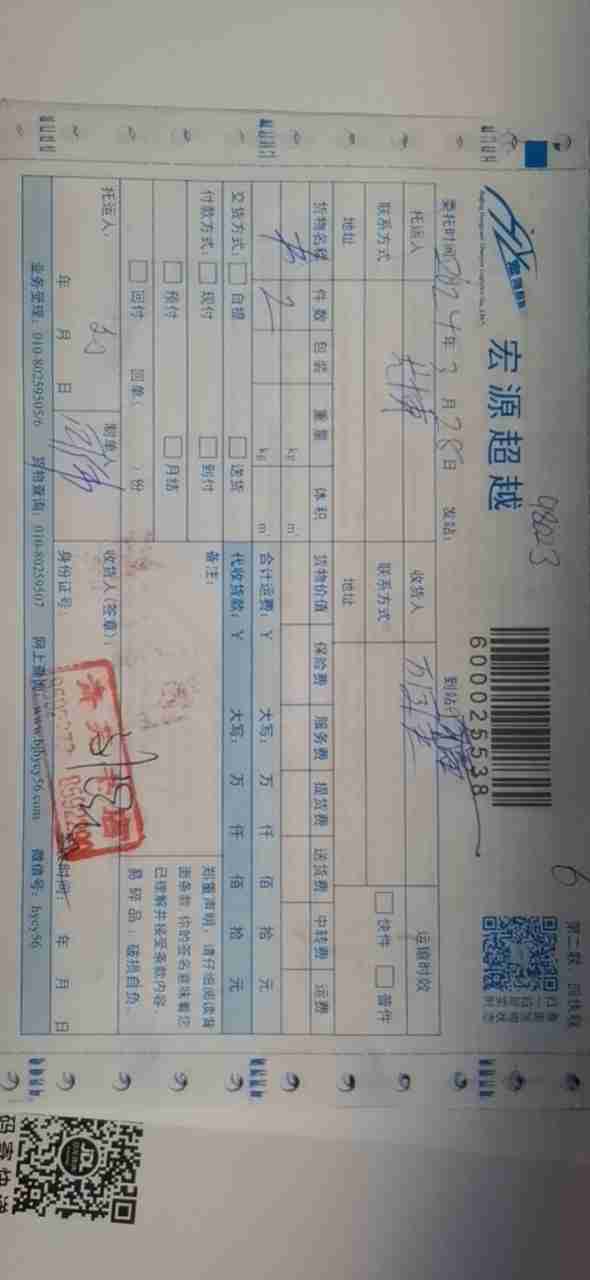 宏源超越
98023
6000025538
6
第二联：回执联
委托时间2024年3月28日 发站： 到站：
托运人 收货人 运输时效
联系方式 联系方式 快件 普件
地址 地址
货物名称 件数 包装 重量 体积 货物价值 保险费 服务费 提货费 送货费 中转费 运费
书 2 kg m³
交货方式： 自提 送货 kg m³ 合计运费：￥ 大写： 万 仟 佰 拾 元
付款方式： 现付 到付 代收货款：￥ 大写： 万 仟 佰 拾 元
预付 月结 备注：
回付 回单（ ）份
郑重声明，请仔细阅读背
面条款 你的签名意味着您
已理解并接受条款内容。
易碎品，破损自负。
托运人： 制单人 收货人(签章)：
年 月 日 身份证号： 时间： 年 月 日
业务受理：010-80259505/6 货物查询：010-80259507 网上查询：www.bjhycy56.com 微信号：hycy56